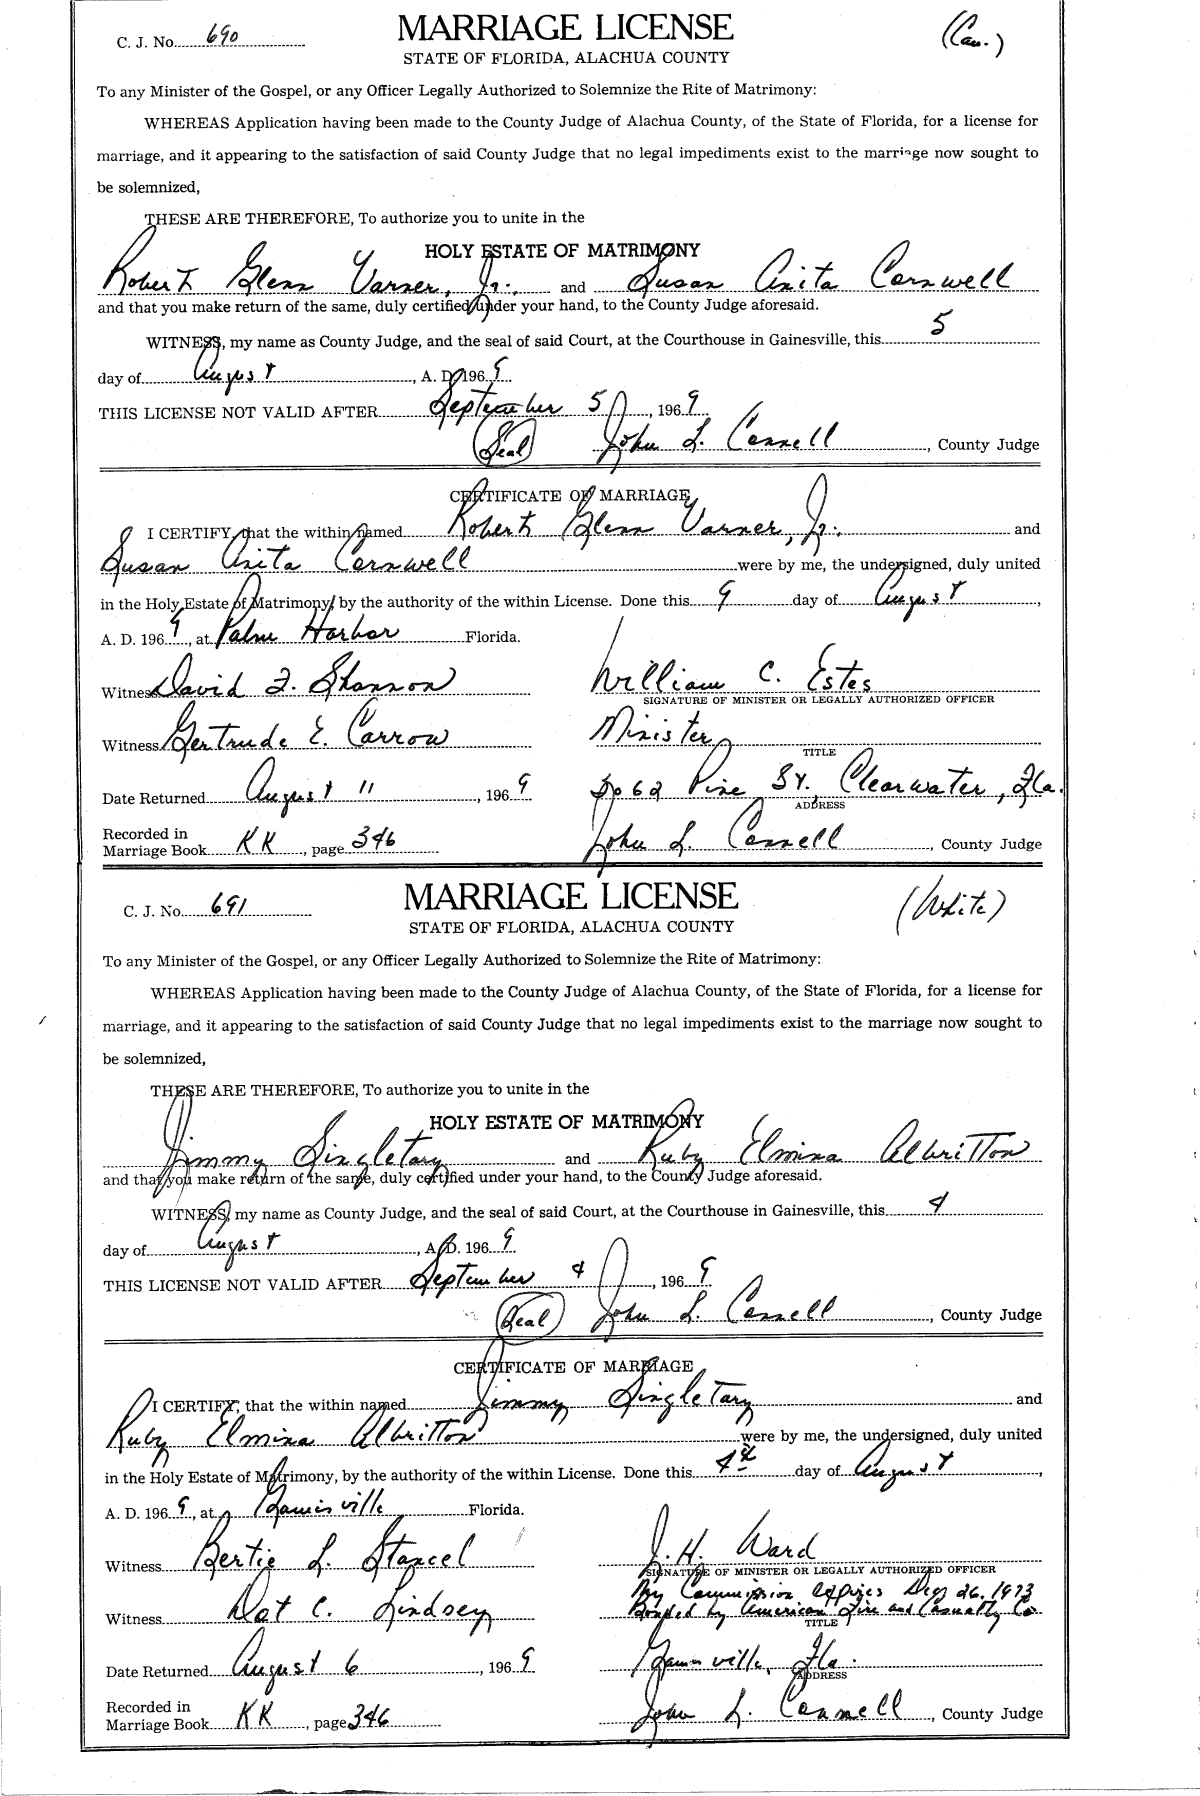 C. J. No. 690 MARRIAGE LICENSE (Cau.)
STATE OF FLORIDA, ALACHUA COUNTY
To any Minister of the Gospel, or any Officer Legally Authorized to Solemnize the Rite of Matrimony:
WHEREAS Application having been made to the County Judge of Alachua County, of the State of Florida, for a license for
marriage, and it appearing to the satisfaction of said County Judge that no legal impediments exist to the marriage now sought to
be solemnized,
THESE ARE THEREFORE, To authorize you to unite in the
HOLY ESTATE OF MATRIMONY
Robert Glenn Varner, Jr. and Susan Anita Cornwell
and that you make return of the same, duly certified under your hand, to the County Judge aforesaid.
WITNESS, my name as County Judge, and the seal of said Court, at the Courthouse in Gainesville, this 5
day of August, A. D. 1969
THIS LICENSE NOT VALID AFTER September 5, 1969
(Seal) John L. Connell, County Judge
CERTIFICATE OF MARRIAGE
I CERTIFY, that the within named Robert Glenn Varner, Jr. and
Susan Anita Cornwell were by me, the undersigned, duly united
in the Holy Estate of Matrimony, by the authority of the within License. Done this 9 day of August,
A. D. 1969, at Palm Harbor Florida.
Witness David F. Shannon William C. Estes
SIGNATURE OF MINISTER OR LEGALLY AUTHORIZED OFFICER
Witness Gertrude E. Carrow Minister
TITLE
Date Returned August 11, 1969 Pine St. Clearwater, Fla.
ADDRESS
Recorded in
Marriage Book KK, page 346 John L. Connell, County Judge
C. J. No. 691 MARRIAGE LICENSE (White)
STATE OF FLORIDA, ALACHUA COUNTY
To any Minister of the Gospel, or any Officer Legally Authorized to Solemnize the Rite of Matrimony:
WHEREAS Application having been made to the County Judge of Alachua County, of the State of Florida, for a license for
marriage, and it appearing to the satisfaction of said County Judge that no legal impediments exist to the marriage now sought to
be solemnized,
THESE ARE THEREFORE, To authorize you to unite in the
HOLY ESTATE OF MATRIMONY
Jimmy Singletary and Ruby Elmina Albritton
and that you make return of the same, duly certified under your hand, to the County Judge aforesaid.
WITNESS, my name as County Judge, and the seal of said Court, at the Courthouse in Gainesville, this 4
day of August, A. D. 1969
THIS LICENSE NOT VALID AFTER September 4, 1969
(Seal) John L. Connell, County Judge
CERTIFICATE OF MARRIAGE
I CERTIFY, that the within named Jimmy Singletary and
Ruby Elmina Albritton were by me, the undersigned, duly united
in the Holy Estate of Matrimony, by the authority of the within License. Done this 4th day of August,
A. D. 1969, at Gainesville Florida.
Witness Bertie L. Stancel J. H. Ward
SIGNATURE OF MINISTER OR LEGALLY AUTHORIZED OFFICER
My Commission expires 26, 1973
Witness Dot C. Lindsey Bonded by American Fire and Casualty Co.
TITLE
Date Returned August 6, 1969 Gainesville, Fla.
ADDRESS
Recorded in
Marriage Book KK, page 346 John L. Connell, County Judge